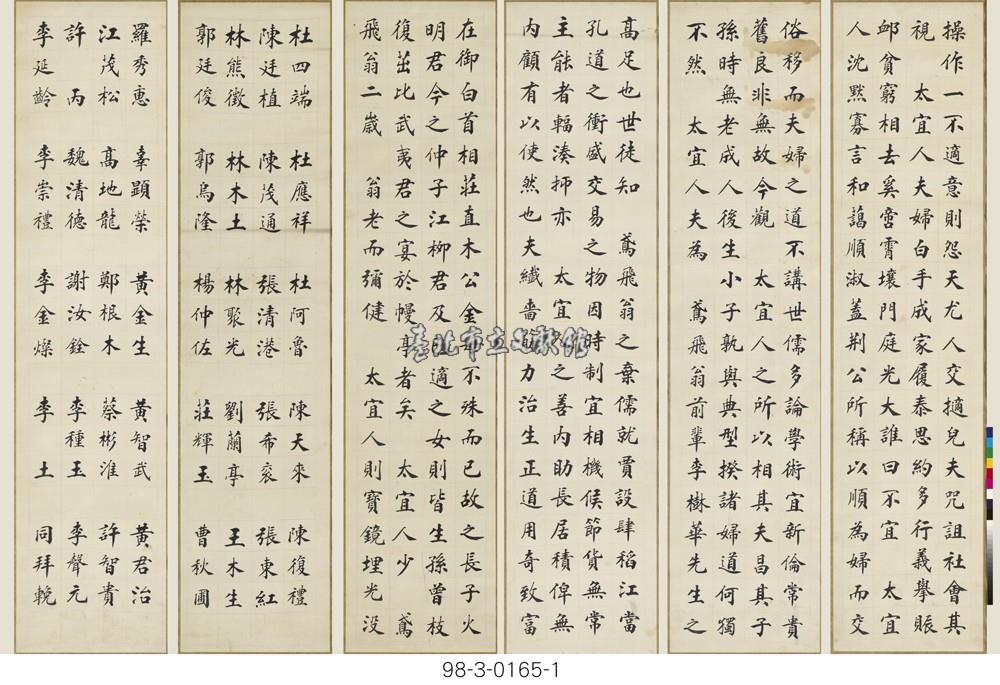 操作一不適意則怨天尤人交擿兒夫咒詛社會其
視　太宜人夫婦白手成家履泰思約多行義舉賑
卹貧窮相去奚啻霄壤門庭光大誰曰不宜　太宜
人沈默寡言和藹順淑蓋荆公所稱以順為婦而交
俗移而夫婦之道不講世儒多論學術宜新倫常貴
舊良非無故今觀　太宜人之所以相其夫昌其子
孫時無老成人後生小子孰與典型揆諸婦道何獨
不然　太宜人夫為　鳶飛翁前輩李樹華先生之
高足也世徒知　鳶飛翁之棄儒就賈設肆稻江當
孔道之衝盛交易之物因時制宜相機候節貨無常
主能者輻湊抑亦　太宜人之善內助長居積俾無
內顧有以使然也夫纖嗇筋力治生正道用奇致富
在御白首相莊直木公金母不殊而已故之長子火
明君今之仲子江柳君及已適之女則皆生孫曾枝
復茁比武夷君之宴於幔亭者矣　太宜人少　鳶
飛翁二歲　翁老而彌健　太宜人則寶鏡埋光沒
杜四端　杜應祥　杜阿魯　陳天來　陳復禮
陳廷植　陳茂通　張清港　張希袞　張東紅
林熊徵　林木土　林聚光　劉蘭亭　王木生
郭廷俊　郭烏隆　楊仲佐　莊輝玉　曹秋圃
羅秀惠　辜顯榮　黃金生　黃智武　黃君治
江茂松　高地龍　鄭根木　蔡彬淮　許智貴
許丙　魏清德　謝汝銓　李種玉　李聲元
李延齡　李崇禮　李金燦　李土　同拜輓
臺北市立文獻館
98-3-0165-1